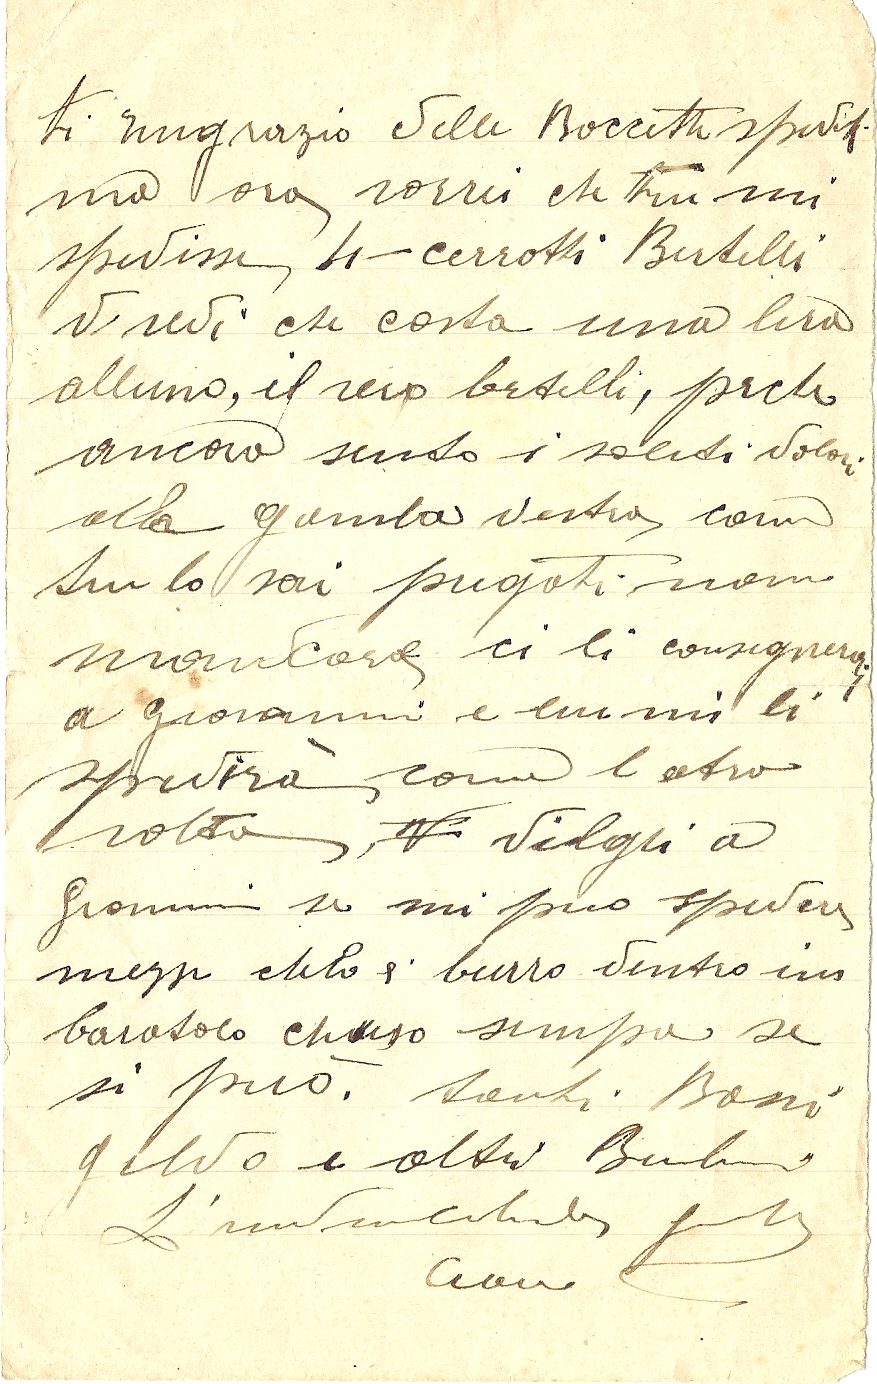 ti ringrazio delle Boccette spedit.
ma ora vorrei che tu mi
spedisse 4 - cerrotti Bertelli
vredi che costa una lira
alluno, il vero bertelli, perche
ancora sento i soliti dolori
alla gamba destra, come
tu lo sai pregoti non
mancare, ci li consignerai
a Giovanni e lui mi li
spedirà, come l atra
volta, digli a
Giovanni se mi puo spedere
mezzo chilo di burro dentro un
baratolo chiuso sempre se
si può. tanti Baci
geldo e altri
L'indimenticabile
Ciau